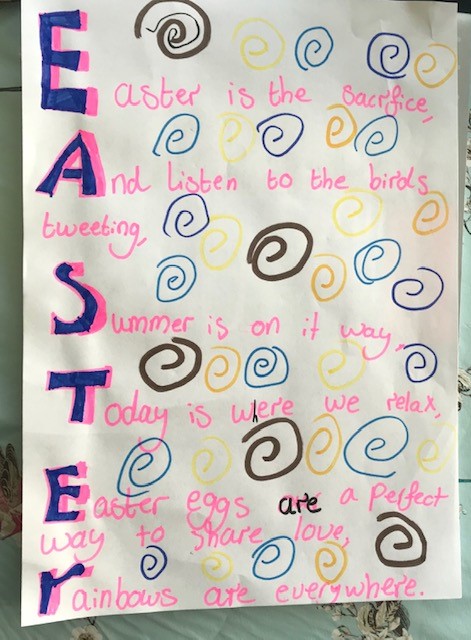 Easter is the sacrfice,
And listen to the birds
tweeting,
Summer is on it way,
Today is where we relax,
Easter eggs are a perfect
way to share love,
rainbows are everywhere.